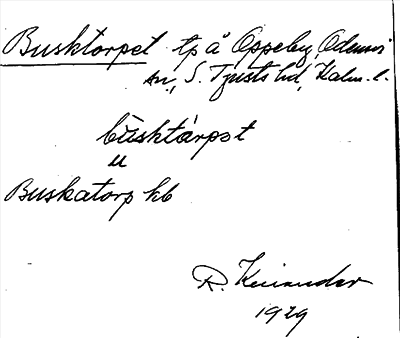 Busktorpet tp å Oppeby, Odensvi
sn, S. Tjusts hd, Kalm. l.
bùsktàrpst
u
Buskatorp kb
R. Kinander
1929